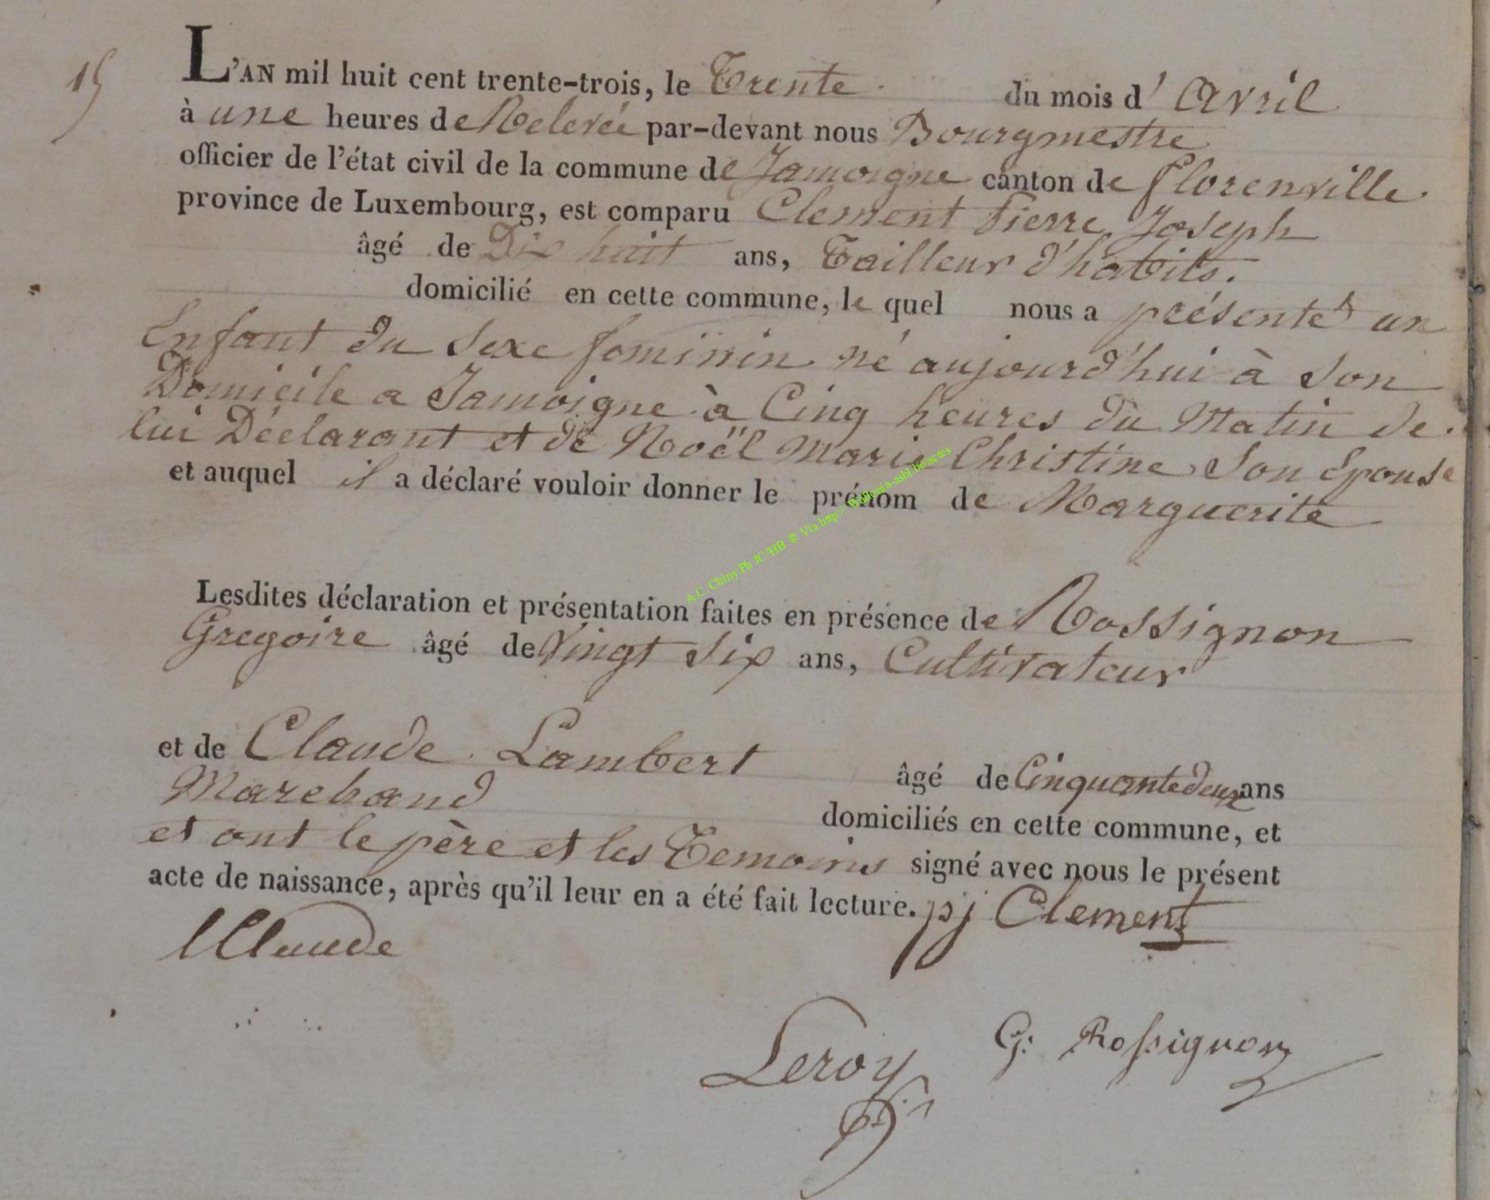 15
L'AN mil huit cent trente-trois, le Trente du mois d' Avril
à une heures de Relevée par-devant nous Bourgmestre
officier de l'état civil de la commune de Jamoigne canton de florenville
province de Luxembourg, est comparu Clement Pierre Joseph
âgé de Dix huit ans, Tailleur d'habits.
domicilié en cette commune, le quel nous a présenté un
Enfant du sexe feminin né aujourd'hui à son
Domicile a Jamoigne à Cinq heures du Matin de
lui Déclarant et de Noël Marie Christine Son Epouse
et auquel il a déclaré vouloir donner le prénom de Marguerite
Lesdites déclaration et présentation faites en présence de Rossignon
Gregoire âgé de Vingt Six ans, Cultivateur
et de Claude Lambert âgé de Cinquante deux ans
Marchand domiciliés en cette commune, et
et ont le père et les Temoins signé avec nous le présent
acte de naissance, après qu'il leur en a été fait lecture. pj Clement
LClaude
Leroy G: Rossignon
A.C. Chiny Ph JC/HB ® Via http://